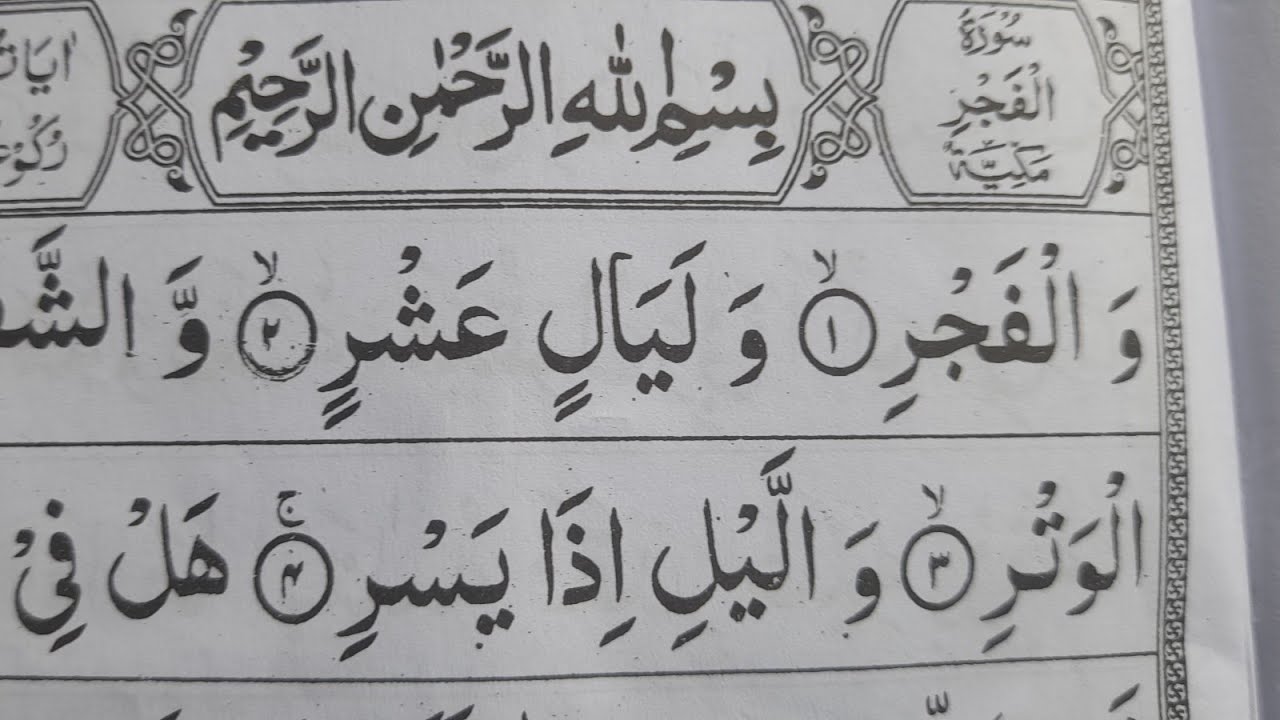 سُوْرَةُ
الْفَجْرِ
مَكِّيَّةٌ
بِسْمِ اللّٰهِ الرَّحْمٰنِ الرَّحِيْمِ
وَ الْفَجْرِ ۙ﴿۱﴾ وَ لَيَالٍ عَشْرٍ ۙ﴿۲﴾ وَّ
الْوَتْرِ ۙ﴿۳﴾ وَ الَّيْلِ اِذَا يَسْرِ ۚ﴿۴﴾ هَلْ فِيْ